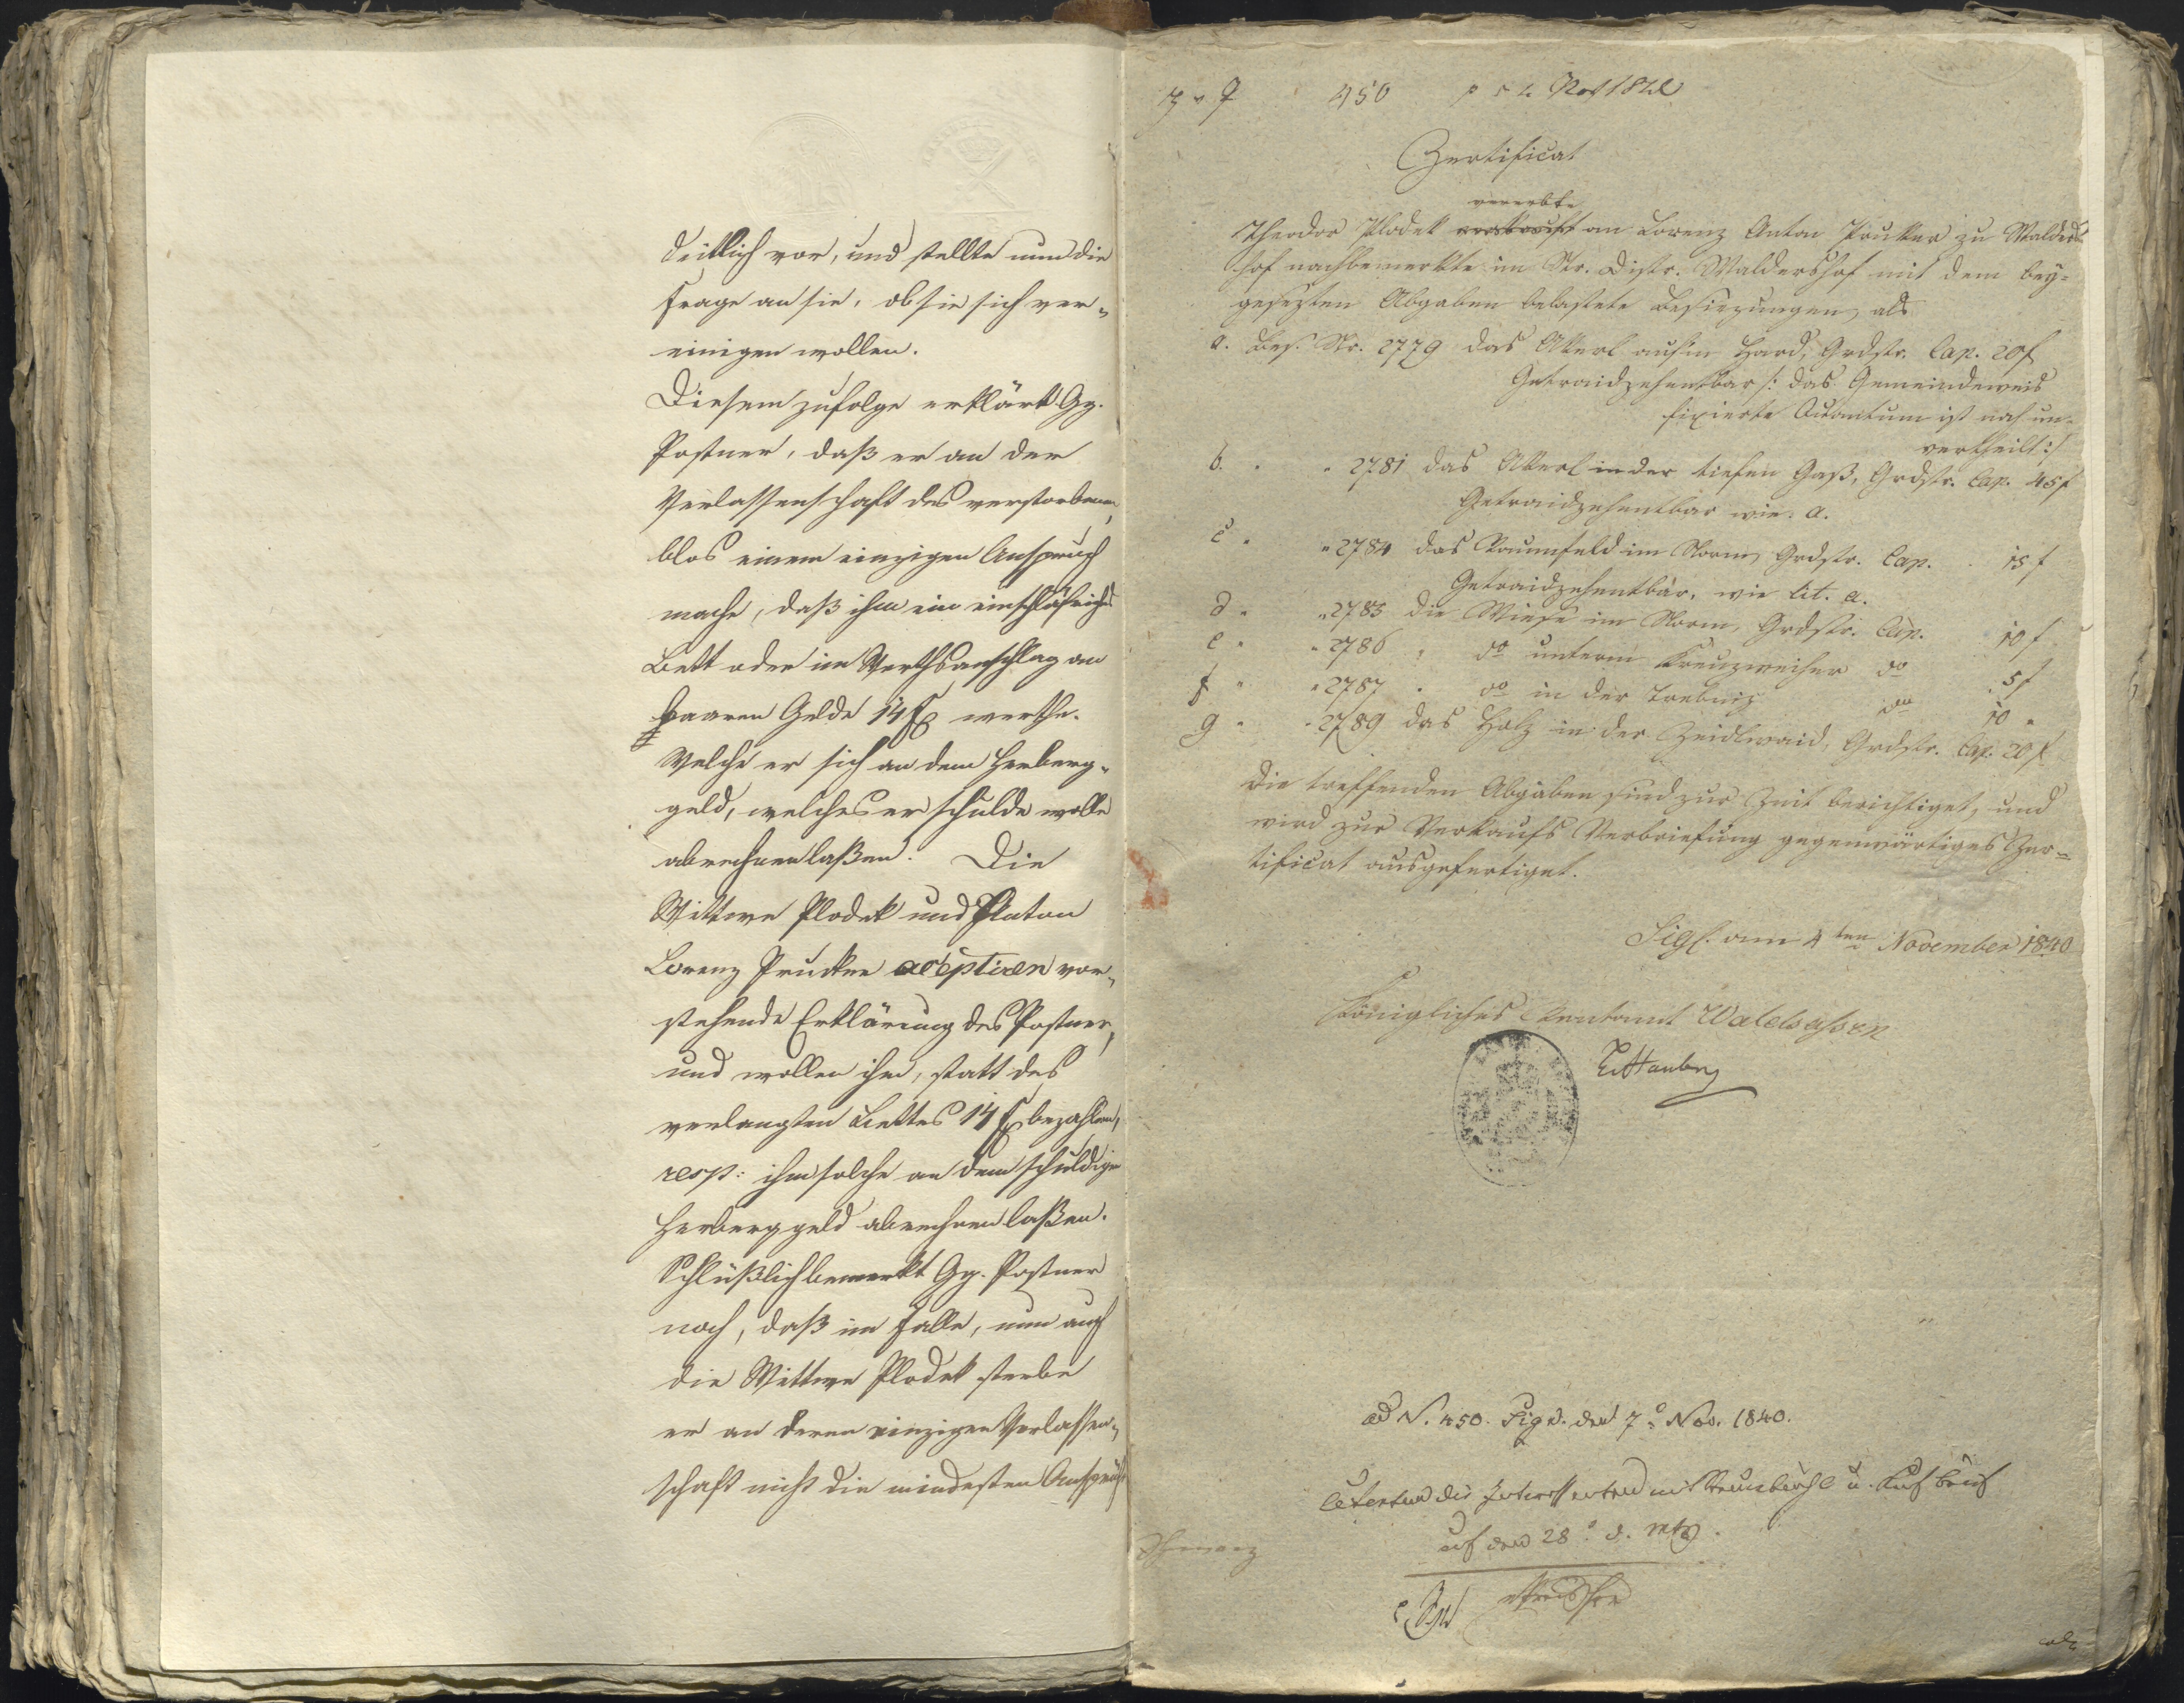 deutlich vor, und stellte nun die
Frage an sie, ob sie sich ver-
einigen wollen.
Diesem zufolge erklärt Gg.
Postner, daß er an der
Verlassenschaft des verstorbenen,
blos einen einzigen Anspruch
mache, daß ihm ein einschläfriches
Bett oder im Werthsanschlag an
baaren Gelde 14 f werthe.
Welche er sich an dem Herberg-
geld, welches er schulde wolle
abrechnen laßen. Die
Wittwe Plodek und Anton
Lorenz Prucker aceptiren vor-
stehende Erklärung des Postner,
und wollen ihm, statt des
verlangten Bettes 14 f bezahlen,
resp: ihm solche an dem schuldigen
Herberggeld abrechnen laßen.
Schlüßlich bemerkt Gg. Postner
noch, daß im Falle, nun auch
die Wittwe Plodek sterbe
er an deren einzigen Verlassen-
schaft nicht die mindesten Ansprüche
450
Zertificat
vererbte
Theodor Plodek verkauft an Lorenz Anton Prucker zu Walders-
hof nachbemerkte im St. Distr. Waldershof mit dem bey-
gesezten Abgaben belastete Besizungen, als
a. Bes. Nr. 2779 das Äckerl aufm Hard, Grdstr. Cap. 20 f
Getraidzehentbar /: das Gemeindeweis
fixierte Quantum ist noch un-
vertheilt :/
b. " " 2781 das Äckerl in der tiefen Gaß, Grdstr. Cap. 45 f
Getraidzehentbar wie a.
c " " 2784 das Raumfeld im Norm, Grdstr. Cap. 15 f
Getraidzehentbar, wie lit. a.
d " " 2785 die Wiese im Norm, Grdstr. Cap. 10 f
e " " 2786 " do unterm Kreuzweiher do 5 f
f " " 2787 " do in der Trebniz do 10 "
g " " 2789 das Holz in der Zeidlwaid, Grdstr. Cap. 20 f
Die treffenden Abgaben sind zur Zeit berichtiget, und
wird zur Verkaufs Verbriefung gegenwärtiges Zer-
tificat ausgefertiget.
Sigl. am 4ten November 1840
Königliches Rentamt Waldsassen
ad N. 450. Sign. den 7. Nov. 1840.
Citentur die Interessenten mit Steuerbüchl u. Kaufbrief
auf den 28. d. Mts.